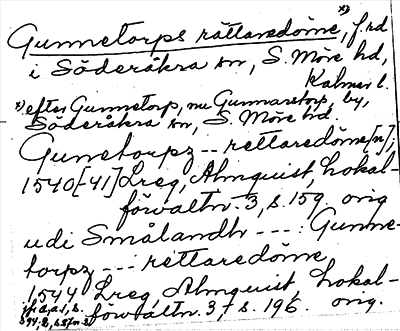 Gunnetorps rättaredöme, x) f.rd
i Söderåkra sn, S. Möre hd,
Kalmar l.
x) efter Gunnetorp, nu Gunnarstorp, by,
Söderåkra sn, S. Möre hd.
Gunetorpz -- rettaredöme[n],
1540[-41] Lreg, Almquist, Lokal-
förvaltn. 3, s. 159. orig
udi Smålandh ---: Gunne-
torpz --- rettaredöme
1544 Lreg, Almquist, Lokal-
förvaltn. 3, s. 196. orig.
jfr a.a. 1, s.